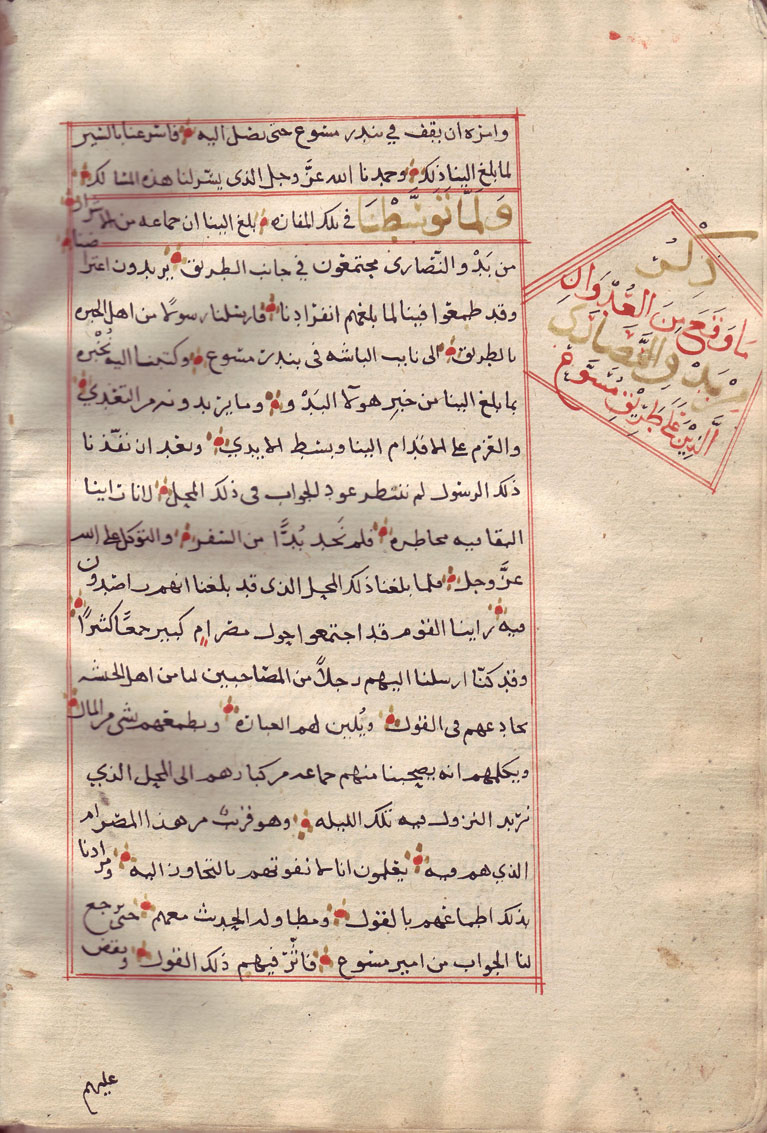 وامره ان يقف في بندر مسوع حتى نصل اليه فاسرعنا بالسير
لما بلغ الينا ذلك وحمدنا الله عزَّ وجل الذى يسر لنا هذه المسالك
وَلمَّا تَوَسَّطْنَا في تلك المفازه بلغ الينا ان جماعه من
من بَدْو النصارى مجتمعون في جانب الطريق يريدون اعتراضنا
وقد طمعوا فينا لما بلغهم انفرادنا فارسلنا رسولًا من اهل الخبره
بالطريق الى نايب الباشه فى بندر مسوع وكتبنا اليه نُخْبره
بما بلغ الينا من خبر هولا البدْو وما يريدونه من التعدي
والعزم على الاقدام الينا وبسط الايدي وبعد ان نفّذنا
ذلك الرسول لم ننتظر عود الجواب فى ذلك المحل لانا راينا
البقا فيه مخاطره فلم نجد بُدًّا من السفر والتوكل على الله
عزَّ وجل فلما بلغنا ذلك المحل الذى قد بلغنا انهم راصدون
فيه راينا القوم قد اجتمعوا حول مضرام كبير جمعًا كثيرًا
وقد كنّا ارسلنا اليهم رجلًا من المصاحبين لنا من اهل الحبشه
يخادعهم فى القول ويُلين لهم العباره ويطمعهم بشى من المال
ويكلمهم انه يصحبنا منهم جماعه من كبارهم الى المحل الذي
نريد النزول فيه تلك الليله وهو قريب من هذا المضرام
الذي هم فيه يعلمون انا لا نفوتهم بالتجاوز اليه ومرادنا
بذلك اطماعهم بالقول ومطاوله الحديث معهم حتى رجع
لنا الجواب من امير مسوع فاثّر فيهم ذلك القول وبعض
عليهم
ذكر
مَا وقعَ مِنَ العُدْوَانِ
مِنْ بَدْوِ النَّصَارَى
الَّذِيْنَ عَلَى طَرِيْقِ مُسَوَّع